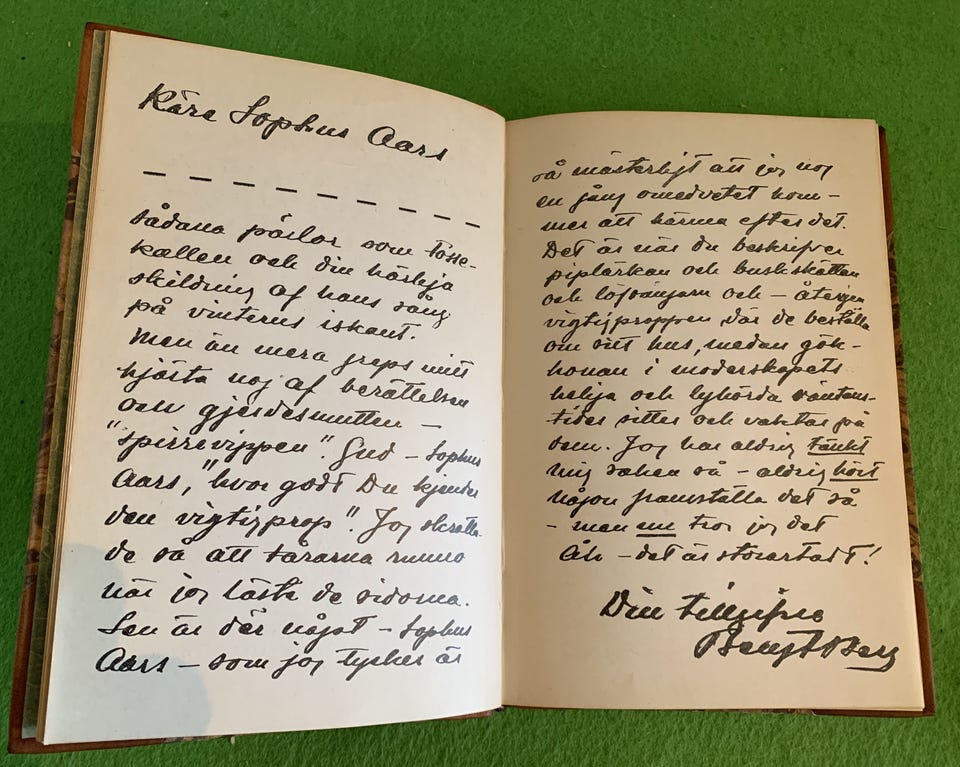 Käre Sophus Aars
— — — — — — — —
sådana pärlor som Tosse-
kallen och din härliga
skildring af hans sång
på vinterns iskant.
Men än mera greps mitt
hjärta nog af berättelsen
om gjerdesmutten —
"spirrevippen". Gud — Sophus
Aars, "hvor godt Du kjender
den vigtigprop". Jag skratta-
de så att tårarna runno
när jag läste de sidorna.
Sen är där något — Sophus
Aars — som jag tycker är
så mästerligt att jag nog
en gång omedvetet kom-
mer att härma efter det.
Det är när du beskrifver
piplärkan och buskskättan
och löfsångarn och — återigen
vigtigproppen, där de beställa
om sitt hus, medan gök-
honan i moderskapets
helga och lyhörda väntans-
tider sitter och vaktar på
dem. Jag har aldrig tänkt
mig saken så — aldrig hört
någon framställa det så
— men nu tror jag det
Åh — det är storartadt!
Din tillgifne
Bengt Berg